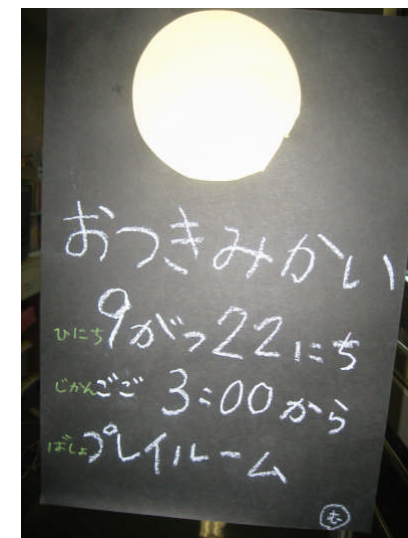 おつきみかい
ひにち 9がつ22にち
じかん ごご 3:00から
ばしょ プレイルーム
む